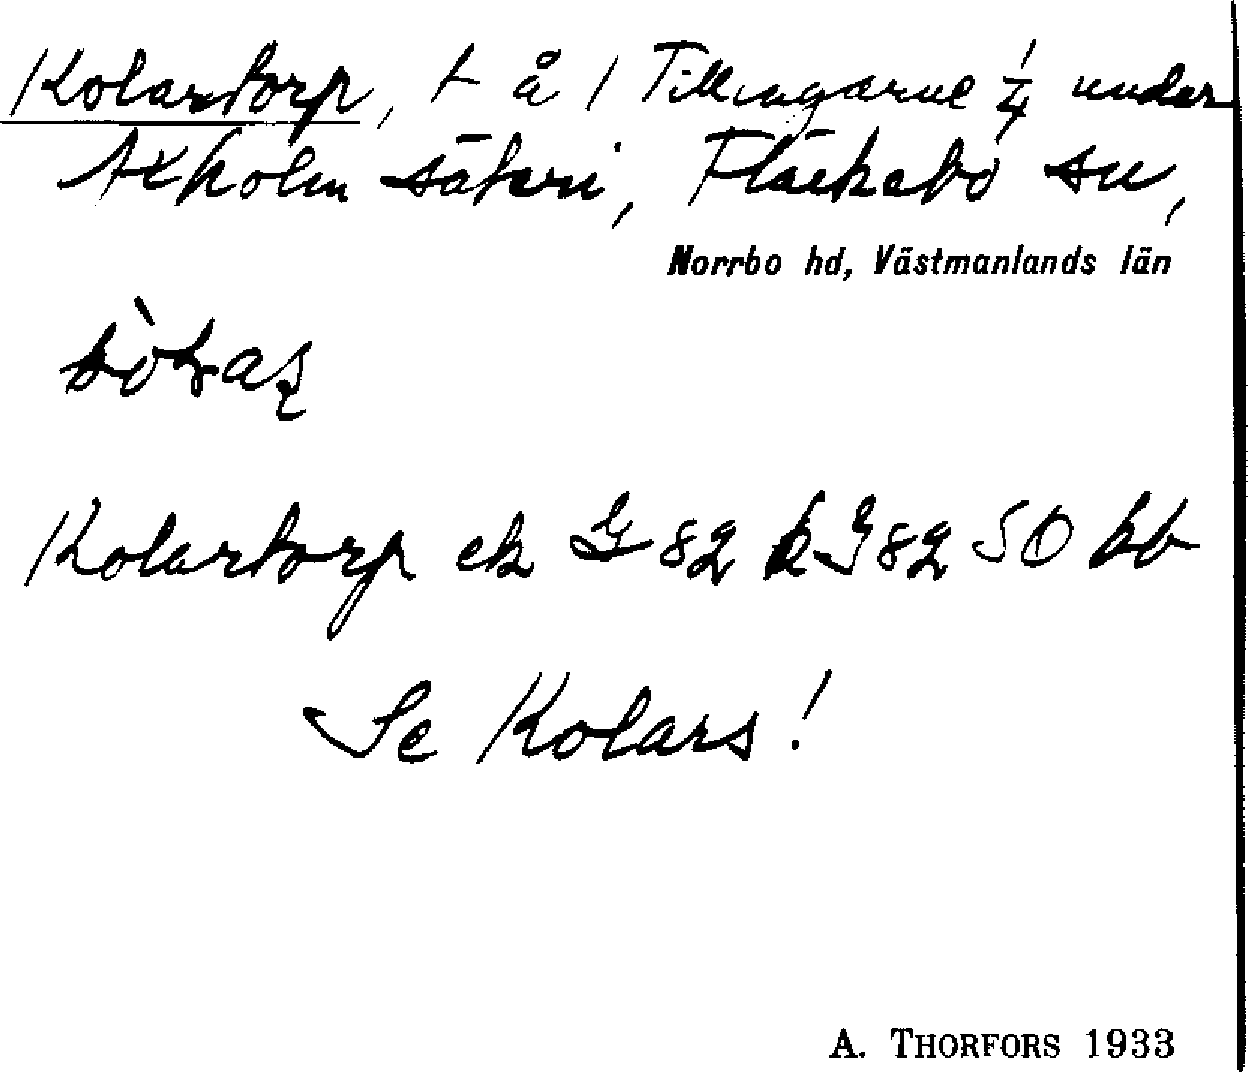 Kolartorp, t å 1 Tillingarne 1/4 under
Axholm säteri, Fläckebo sn,
Norrbo hd, Västmanlands län
Kolartorp ek G 82 k J 82 SO bb
Se Kolars!
A. THORFORS 1933